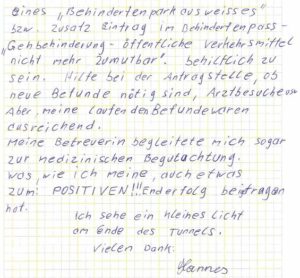 eines „Behindertenparkausweises"
bzw. Zusatz Eintrag im Behindertenpass-
„Gehbehinderung - öffentliche Verkehrsmittel
nicht mehr zumutbar". behilflich zu
sein. Hilfe bei der Antragstelle, ob
neue Befunde nötig sind, Arztbesuche usw.
Aber, meine laufenden Befunde waren
ausreichend.
Meine Betreuerin begleitete mich sogar
zur medizinischen Begutachtung.
Was, wie ich meine, auch etwas
zum POSITIVEN!!! Enderfolg beigtragen
hat.
Ich sehe ein kleines Licht
am Ende des Tunnels.
Vielen Dank.
Hannes